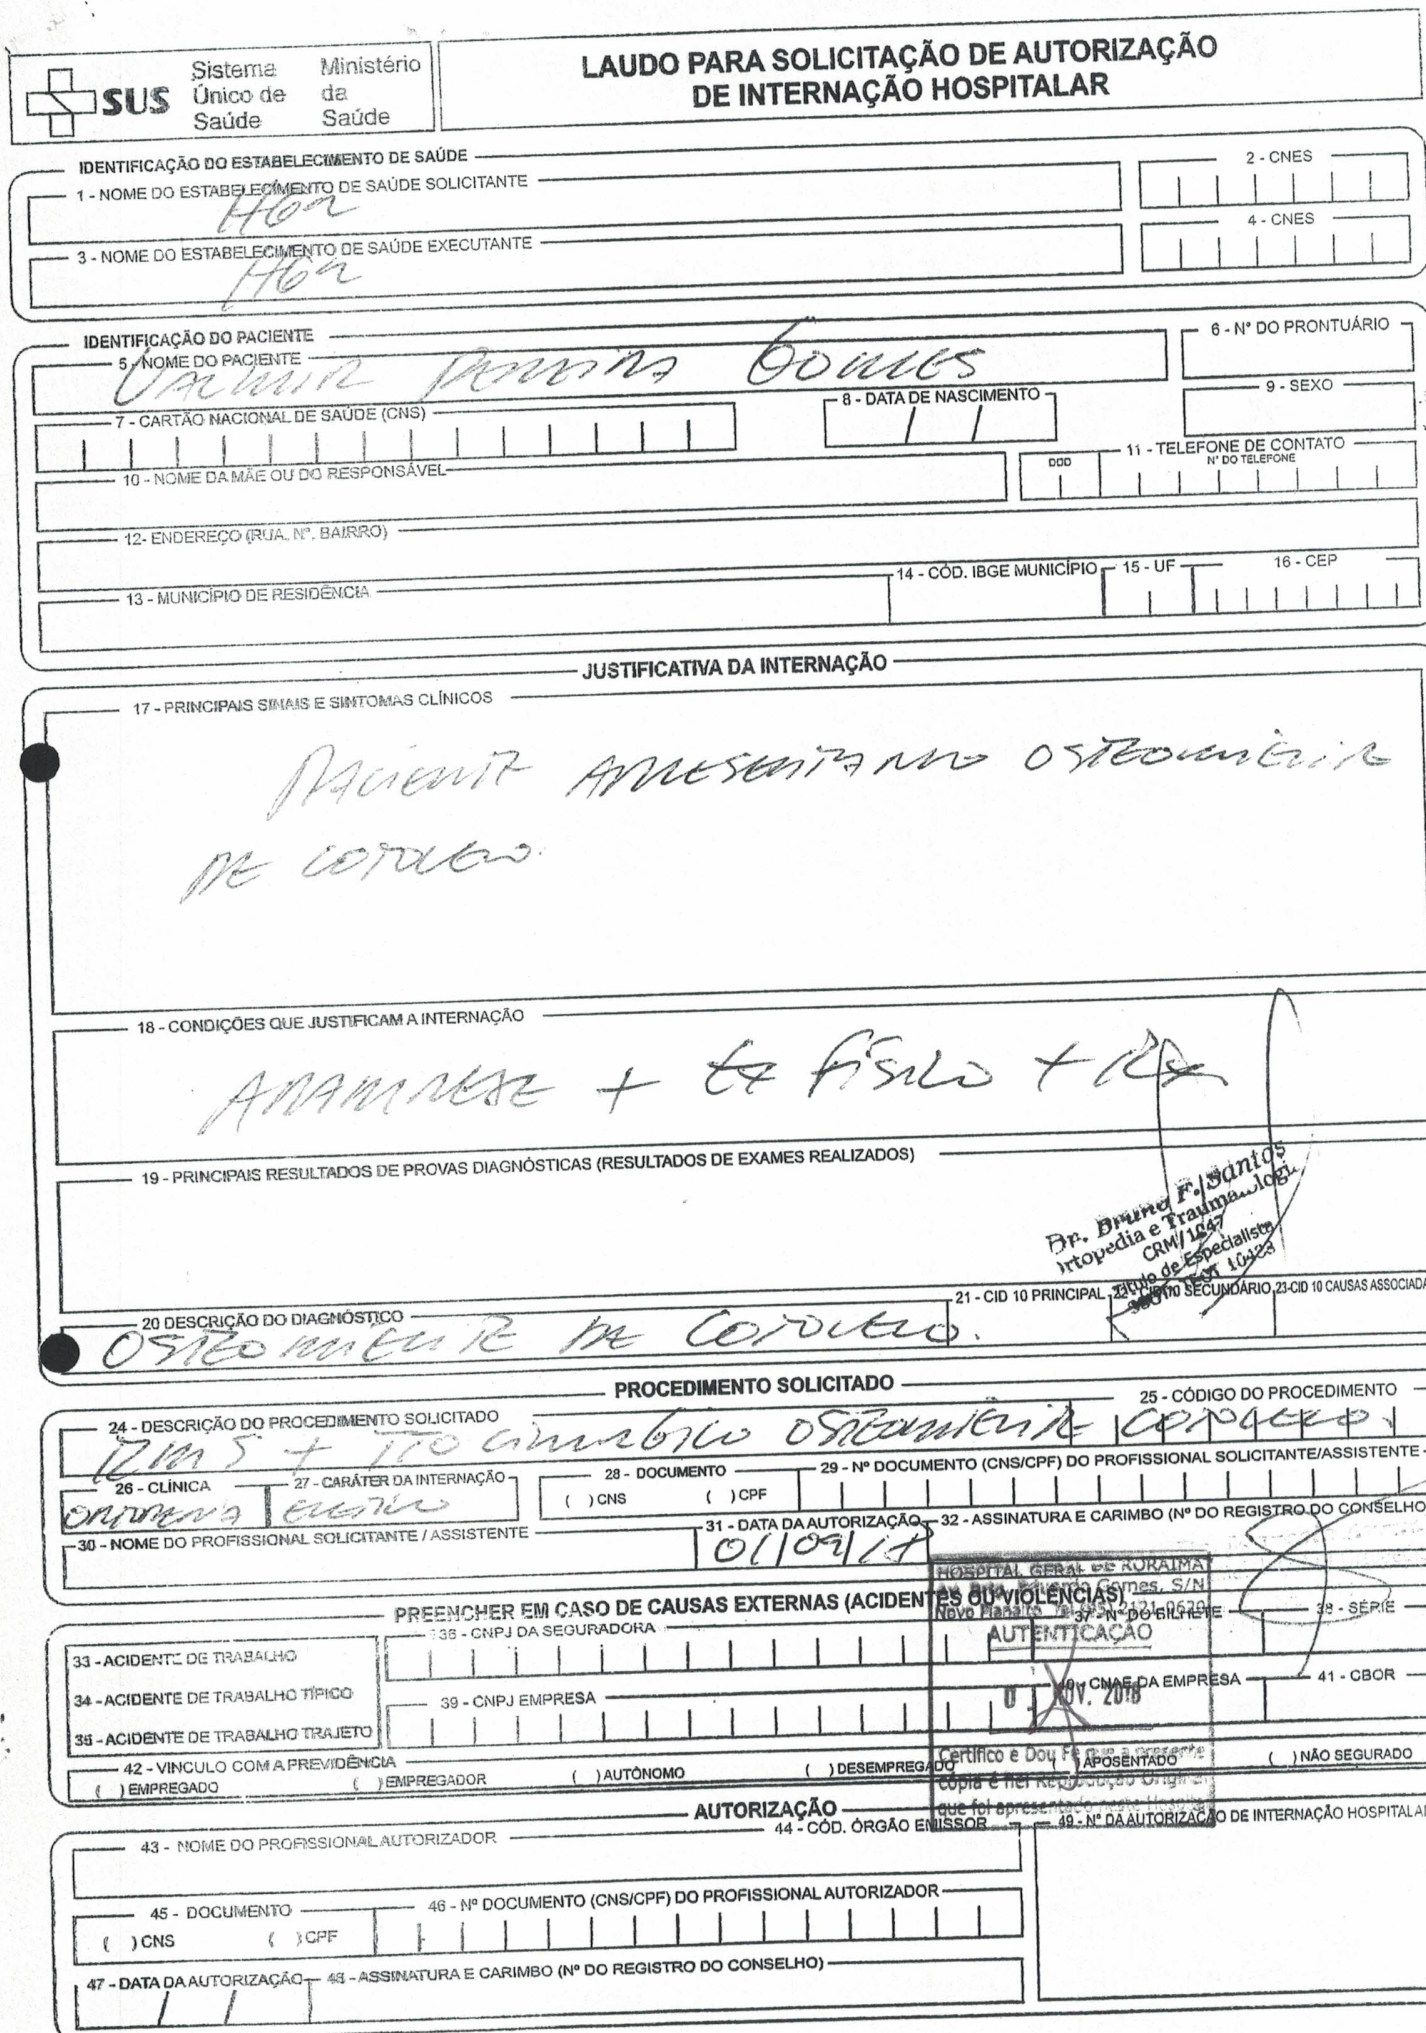 SUS
Sistema Único de Saúde
Ministério da Saúde
LAUDO PARA SOLICITAÇÃO DE AUTORIZAÇÃO
DE INTERNAÇÃO HOSPITALAR
IDENTIFICAÇÃO DO ESTABELECIMENTO DE SAÚDE
1 - NOME DO ESTABELECIMENTO DE SAÚDE SOLICITANTE
2 - CNES
HGR
3 - NOME DO ESTABELECIMENTO DE SAÚDE EXECUTANTE
4 - CNES
HGR
IDENTIFICAÇÃO DO PACIENTE
5 - NOME DO PACIENTE
6 - N° DO PRONTUÁRIO
VALMIR PEREIRA GOMES
7 - CARTÃO NACIONAL DE SAÚDE (CNS)
8 - DATA DE NASCIMENTO
9 - SEXO
10 - NOME DA MÃE OU DO RESPONSÁVEL
11 - TELEFONE DE CONTATO
DDD
N° DO TELEFONE
12- ENDEREÇO (RUA, N°, BAIRRO)
13 - MUNICÍPIO DE RESIDÊNCIA
14 - CÓD. IBGE MUNICÍPIO
15 - UF
16 - CEP
JUSTIFICATIVA DA INTERNAÇÃO
17 - PRINCIPAIS SINAIS E SINTOMAS CLÍNICOS
PACIENTE APRESENTANDO OSTEOMIELITE
DE COTOVELO.
18 - CONDIÇÕES QUE JUSTIFICAM A INTERNAÇÃO
ANAMNESE + EX FÍSICO + RX
19 - PRINCIPAIS RESULTADOS DE PROVAS DIAGNÓSTICAS (RESULTADOS DE EXAMES REALIZADOS)
Dr. Bruno F. Santos
Ortopedia e Traumatologia
CRM/1247
Título de Especialista
TEOT 10423
20 DESCRIÇÃO DO DIAGNÓSTICO
21 - CID 10 PRINCIPAL
22 - CID 10 SECUNDÁRIO
23-CID 10 CAUSAS ASSOCIADA
OSTEOMIELITE DE COTOVELO.
PROCEDIMENTO SOLICITADO
24 - DESCRIÇÃO DO PROCEDIMENTO SOLICITADO
25 - CÓDIGO DO PROCEDIMENTO
+ TTO CIRURGICO OSTEOMIELITE COTOVELO.
26 - CLÍNICA
27 - CARÁTER DA INTERNAÇÃO
28 - DOCUMENTO
29 - Nº DOCUMENTO (CNS/CPF) DO PROFISSIONAL SOLICITANTE/ASSISTENTE
ORTOPEDIA
ELETIVO
( ) CNS
( ) CPF
30 - NOME DO PROFISSIONAL SOLICITANTE / ASSISTENTE
31 - DATA DA AUTORIZAÇÃO
32 - ASSINATURA E CARIMBO (Nº DO REGISTRO DO CONSELHO
HOSPITAL GERAL DE RORAIMA
Av. Brig. Eduardo Gomes, S/N
Novo Planalto
AUTENTICAÇÃO
NOV. 2018
Certifico e Dou Fé que a presente
cópia é fiel Reprodução Original
que foi apresentado neste Hospital
PREENCHER EM CASO DE CAUSAS EXTERNAS (ACIDENTES OU VIOLÊNCIAS)
33 - ACIDENTE DE TRABALHO
36 - CNPJ DA SEGURADORA
37 - N° DO BILHETE
38 - SÉRIE
34 - ACIDENTE DE TRABALHO TÍPICO
39 - CNPJ EMPRESA
40 - CNAE DA EMPRESA
41 - CBOR
35 - ACIDENTE DE TRABALHO TRAJETO
42 - VINCULO COM A PREVIDÊNCIA
( ) EMPREGADO
( ) EMPREGADOR
( ) AUTÔNOMO
( ) DESEMPREGADO
( ) APOSENTADO
( ) NÃO SEGURADO
AUTORIZAÇÃO
43 - NOME DO PROFISSIONAL AUTORIZADOR
44 - CÓD. ÓRGÃO EMISSOR
49 - Nº DA AUTORIZAÇÃO DE INTERNAÇÃO HOSPITALAR
45 - DOCUMENTO
46 - Nº DOCUMENTO (CNS/CPF) DO PROFISSIONAL AUTORIZADOR
( ) CNS
( ) CPF
47 - DATA DA AUTORIZAÇÃO
48 - ASSINATURA E CARIMBO (Nº DO REGISTRO DO CONSELHO)